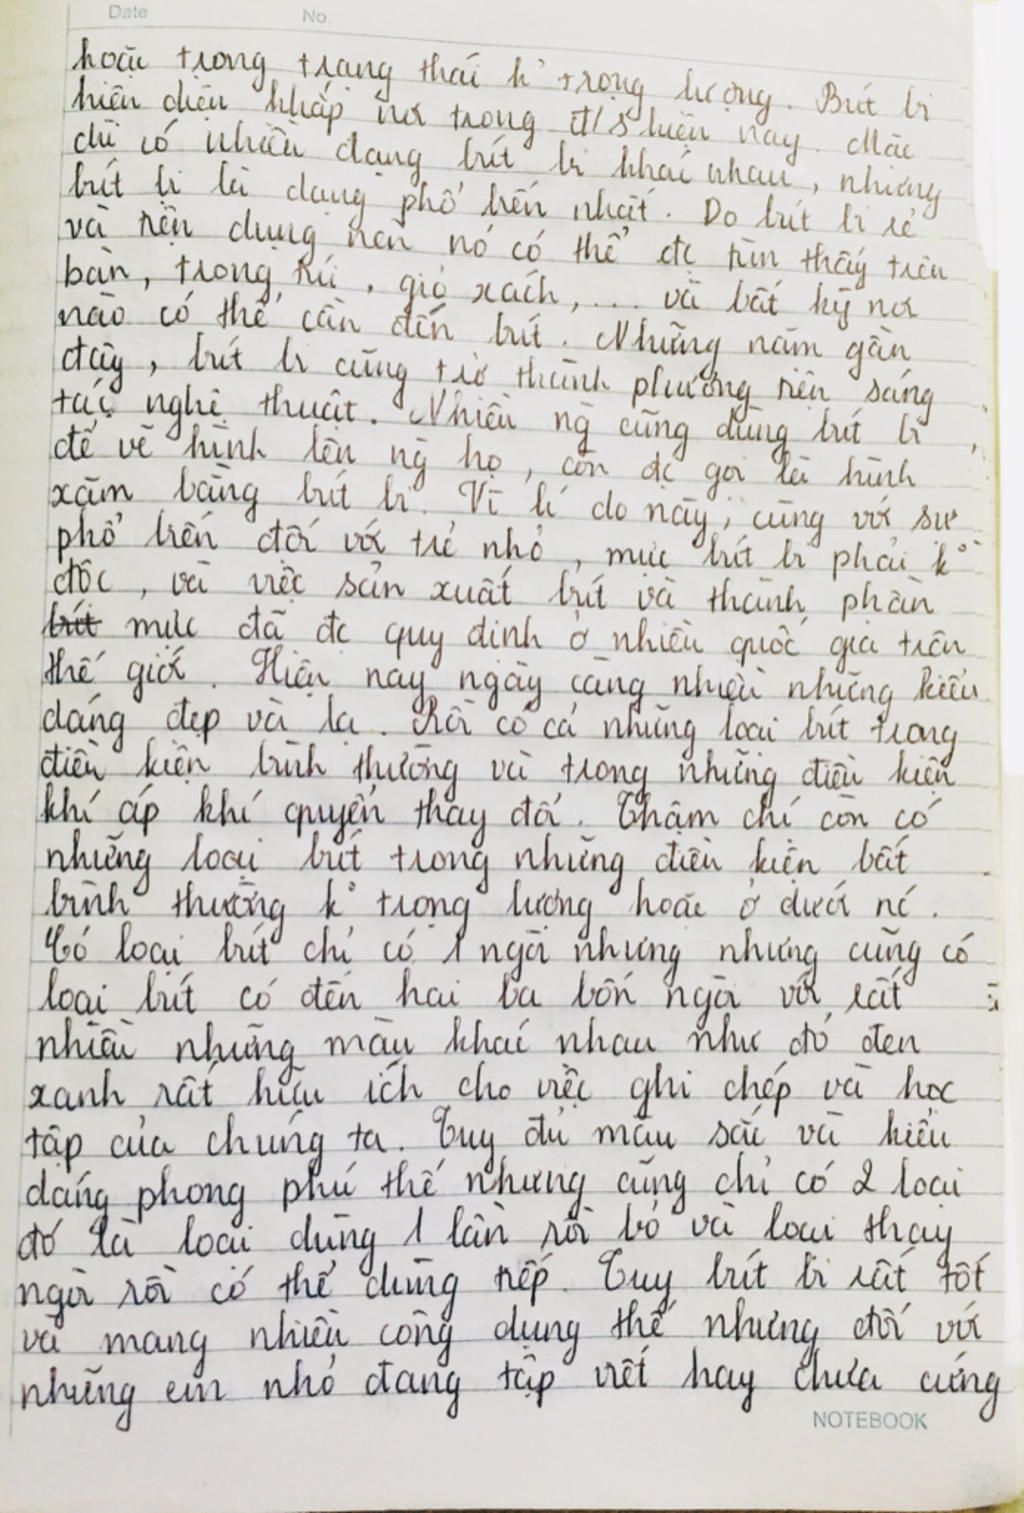 Date No.
hoặc trọng trạng thái k° trọng lượng. Bút bi
hiện diện khắp nơi trong đ/s hiện nay. Mặc
dù có nhiều dạng bút bi khác nhau, nhưng
bút bi là dạng phổ biến nhất. Do bút bi rẻ
và tiện dụng nên nó có thể đc tìm thấy trên
bàn, trong túi, giỏ xách, ... và bất kỳ nơi
nào có thể cần đến bút. Những năm gần
đây, bút bi cũng trở thành phương tiện sáng
tác nghệ thuật. Nhiều ng cũng dùng bút bi
để vẽ hình lên ng họ, còn đc gọi là hình
xăm bằng bút bi. Vì lí do này, cùng với sự
phổ biến đối với trẻ nhỏ, mực bút bi phải k°
độc, và việc sản xuất bút và thành phần
bút mực đã đc quy định ở nhiều quốc gia trên
thế giới. Hiện nay ngày càng nhiều những kiểu
dáng đẹp và lạ. Rồi có cả những loại bút trong
điều kiện bình thường và trong những điều kiện
khí áp khí quyển thay đổi. Thậm chí còn có
những loại bút trong những điều kiện bất
bình thường k° trọng lượng hoặc ở dưới nc.
Có loại bút chỉ có 1 ngòi nhưng nhưng cũng có
loại bút có đến hai ba bốn ngòi với rất
nhiều những màu khác nhau như đỏ đen
xanh rất hữu ích cho việc ghi chép và học
tập của chúng ta. Tuy đủ màu sắc và kiểu
dáng phong phú thế nhưng cũng chỉ có 2 loại
đó là loại dùng 1 lần rồi bỏ và loại thay
ngòi rồi có thể dùng tiếp. Tuy bút bi rất tốt
và mang nhiều công dụng thế nhưng đối với
những em nhỏ đang tập viết hay chưa cứng
NOTEBOOK